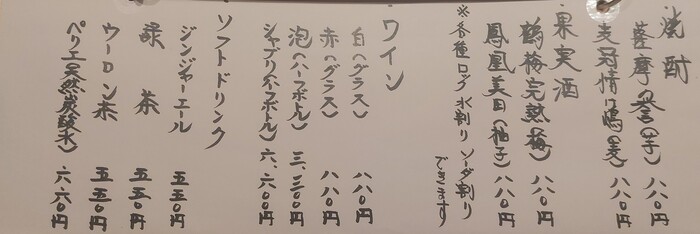 焼酎
薩摩の誉(芋) 八八〇円
麦冠情け嶋(麦) 八八〇円
果実酒
鶴梅完熟(梅) 八八〇円
鳳凰美田(柚子) 八八〇円
※各種ロック 水割り ソーダ割り
できます
ワイン
白(グラス) 八八〇円
赤(グラス) 八八〇円
泡(ハーフボトル) 三、三〇〇円
シャブリ(ハーフボトル) 六、六〇〇円
ソフトドリンク
ジンジャーエール 五五〇円
緑茶 五五〇円
ウーロン茶 五五〇円
ペリエ(天然炭酸水) 六六〇円